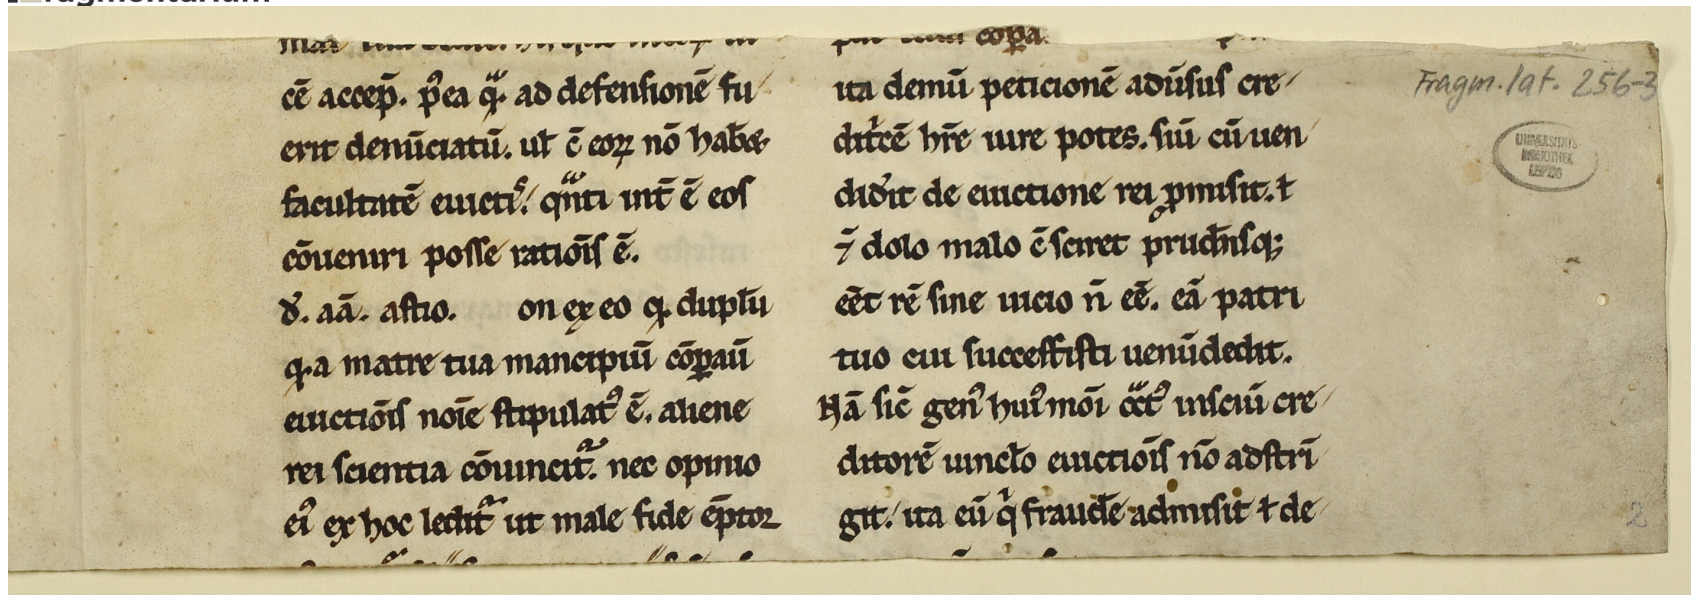 cē accep̄. p̾ea q̊. ad defensionē fu
erit denūciatū. ul̄ ē eoꝝ nō hab̄e
facultatē euicti. qnti int̄ ē eos
cōueniri posse ratiōis ē.
d̾. aā. astio. on ex eo q. duplū
q. a matre tua mancipiū cōꝑaū
euictiōis noīe stipulat᾽ ē. aliene
rei scientia cōuincit᷑. nec opinio
ei᾽ ex hoc ledit᷑ ut male fide ēptor
coꝑa
ita demū peticionē adūsus cre
dit̾cē hr̄e iure potes. siū cū uen
did̾it de euictione rei ꝓmisit. ł
⁊̄ dolo malo ē sciret prud̄nsqꝫ
eēt rē sine uicio n̄ eē. eā patri
tuo cui successisti uenūdedit.
Nā sic̄ gen᾽ hui᾽mōi ꝯ̈ct᾽ insciū cre
ditorē uincl̄o euictiōis nō adstrī
git. ita eū q̇ fraudē admisit ł de
Fragm. lat. 256-3
UNIVERSITÄTS
BIBLIOTHEK
LEIPZIG
2